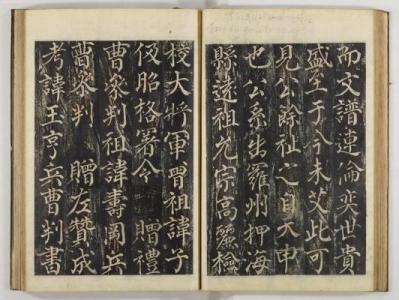 而文譜連侖奕世貴
盛至于今未艾此可
見公餘祉之自大中
也公系出雍州押海
縣遠祖允宗高麗檢
校大將軍曾祖諱子
伋昭格署令　贈禮
曹參判祖諱壽岡兵
曹參判　贈左贊成
考諱王亨兵曹判書